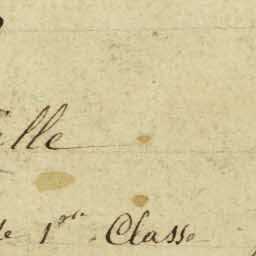 ille
de 1re. Classe